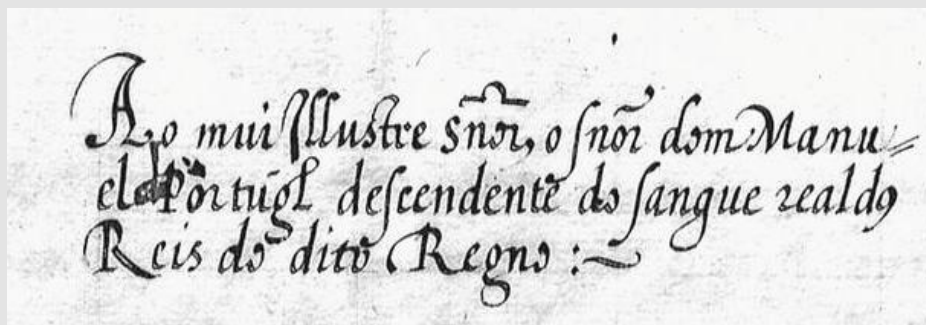 Ao mui Illustre Sñor, o sñor dom Manu-
el de Portugl descendente do sangue real dos
Reis do dito Regno :~